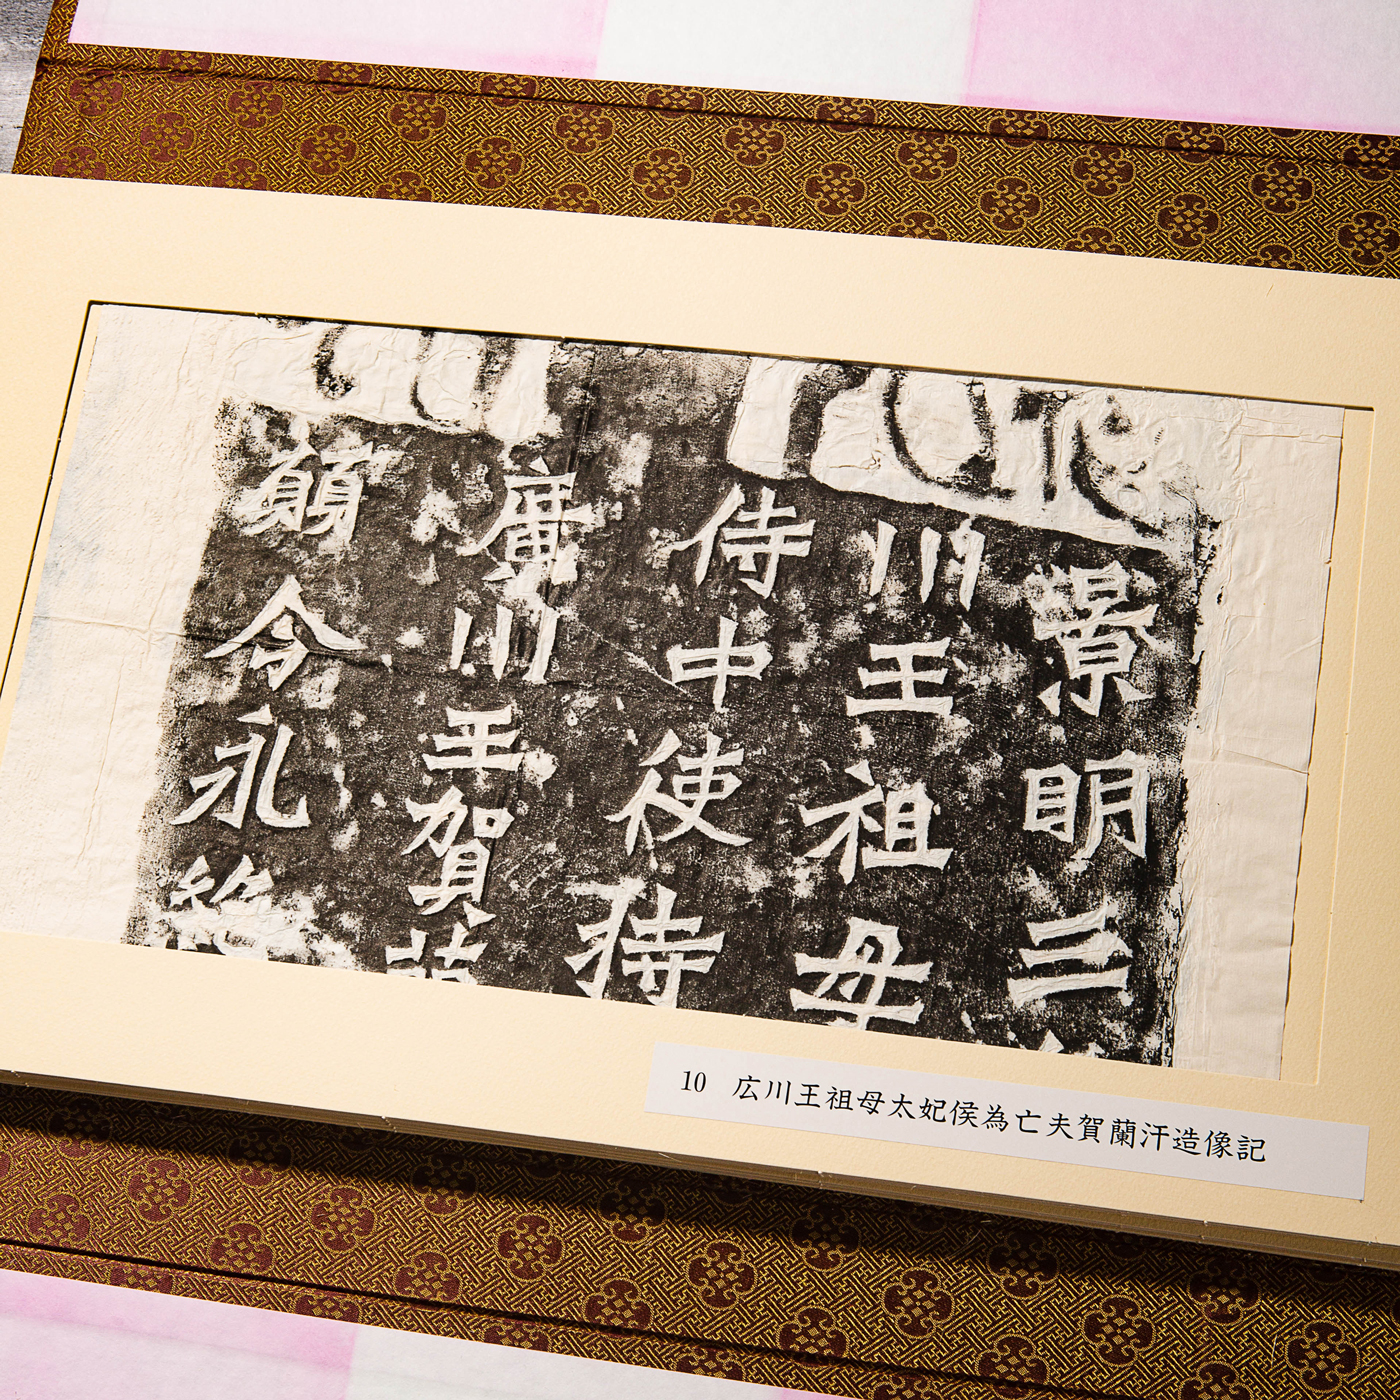 景明三
川王祖母
侍中使持
廣川王賀
願令永絶
10 広川王祖母太妃侯為亡夫賀蘭汗造像記